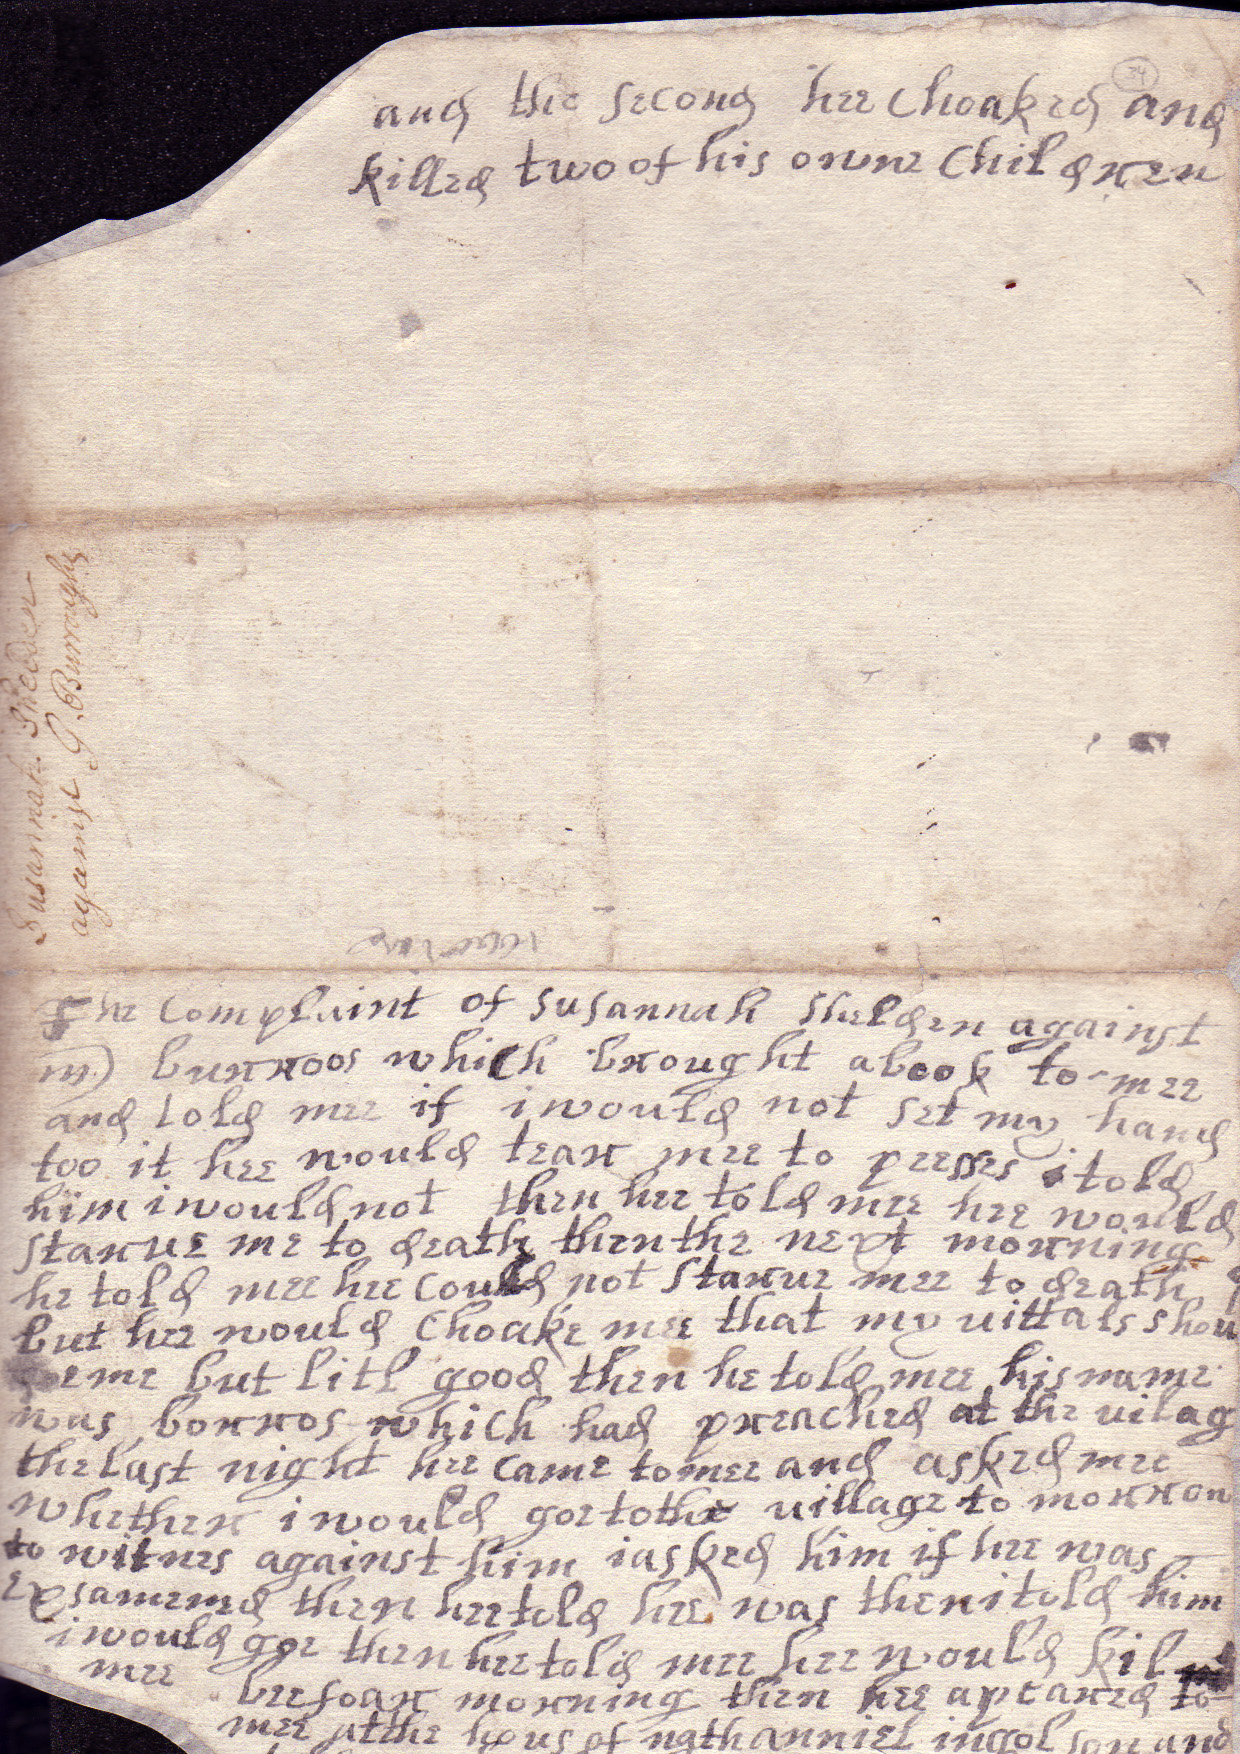 34
and the second hee Choaked and
killed two of his owne Children
Susannah Shelden
against G. Burroughs
The Complaint of Susannah Shelden against
mr burroos which brought a book to mee
and told mee if i would not set my hand
too it hee would tear mee to peesses i told
him i would not then hee told mee hee would
starue me to death then the next morning
he told mee hee could not starue mee to death
but hee would Choake mee that my uittals shou
me but litl good then he told mee his name
was borros which had preached at the uilag
the last night hee came to mee and asked mee
whether i would goe to the uillage to morrou
to witnes against him i asked him if hee was
Exsamened then hee told hee was then i told him
i would goe then hee told mee hee would kil
mee beefoar morning then hee apeared to
mee at the hous of nathanniel ingolson and